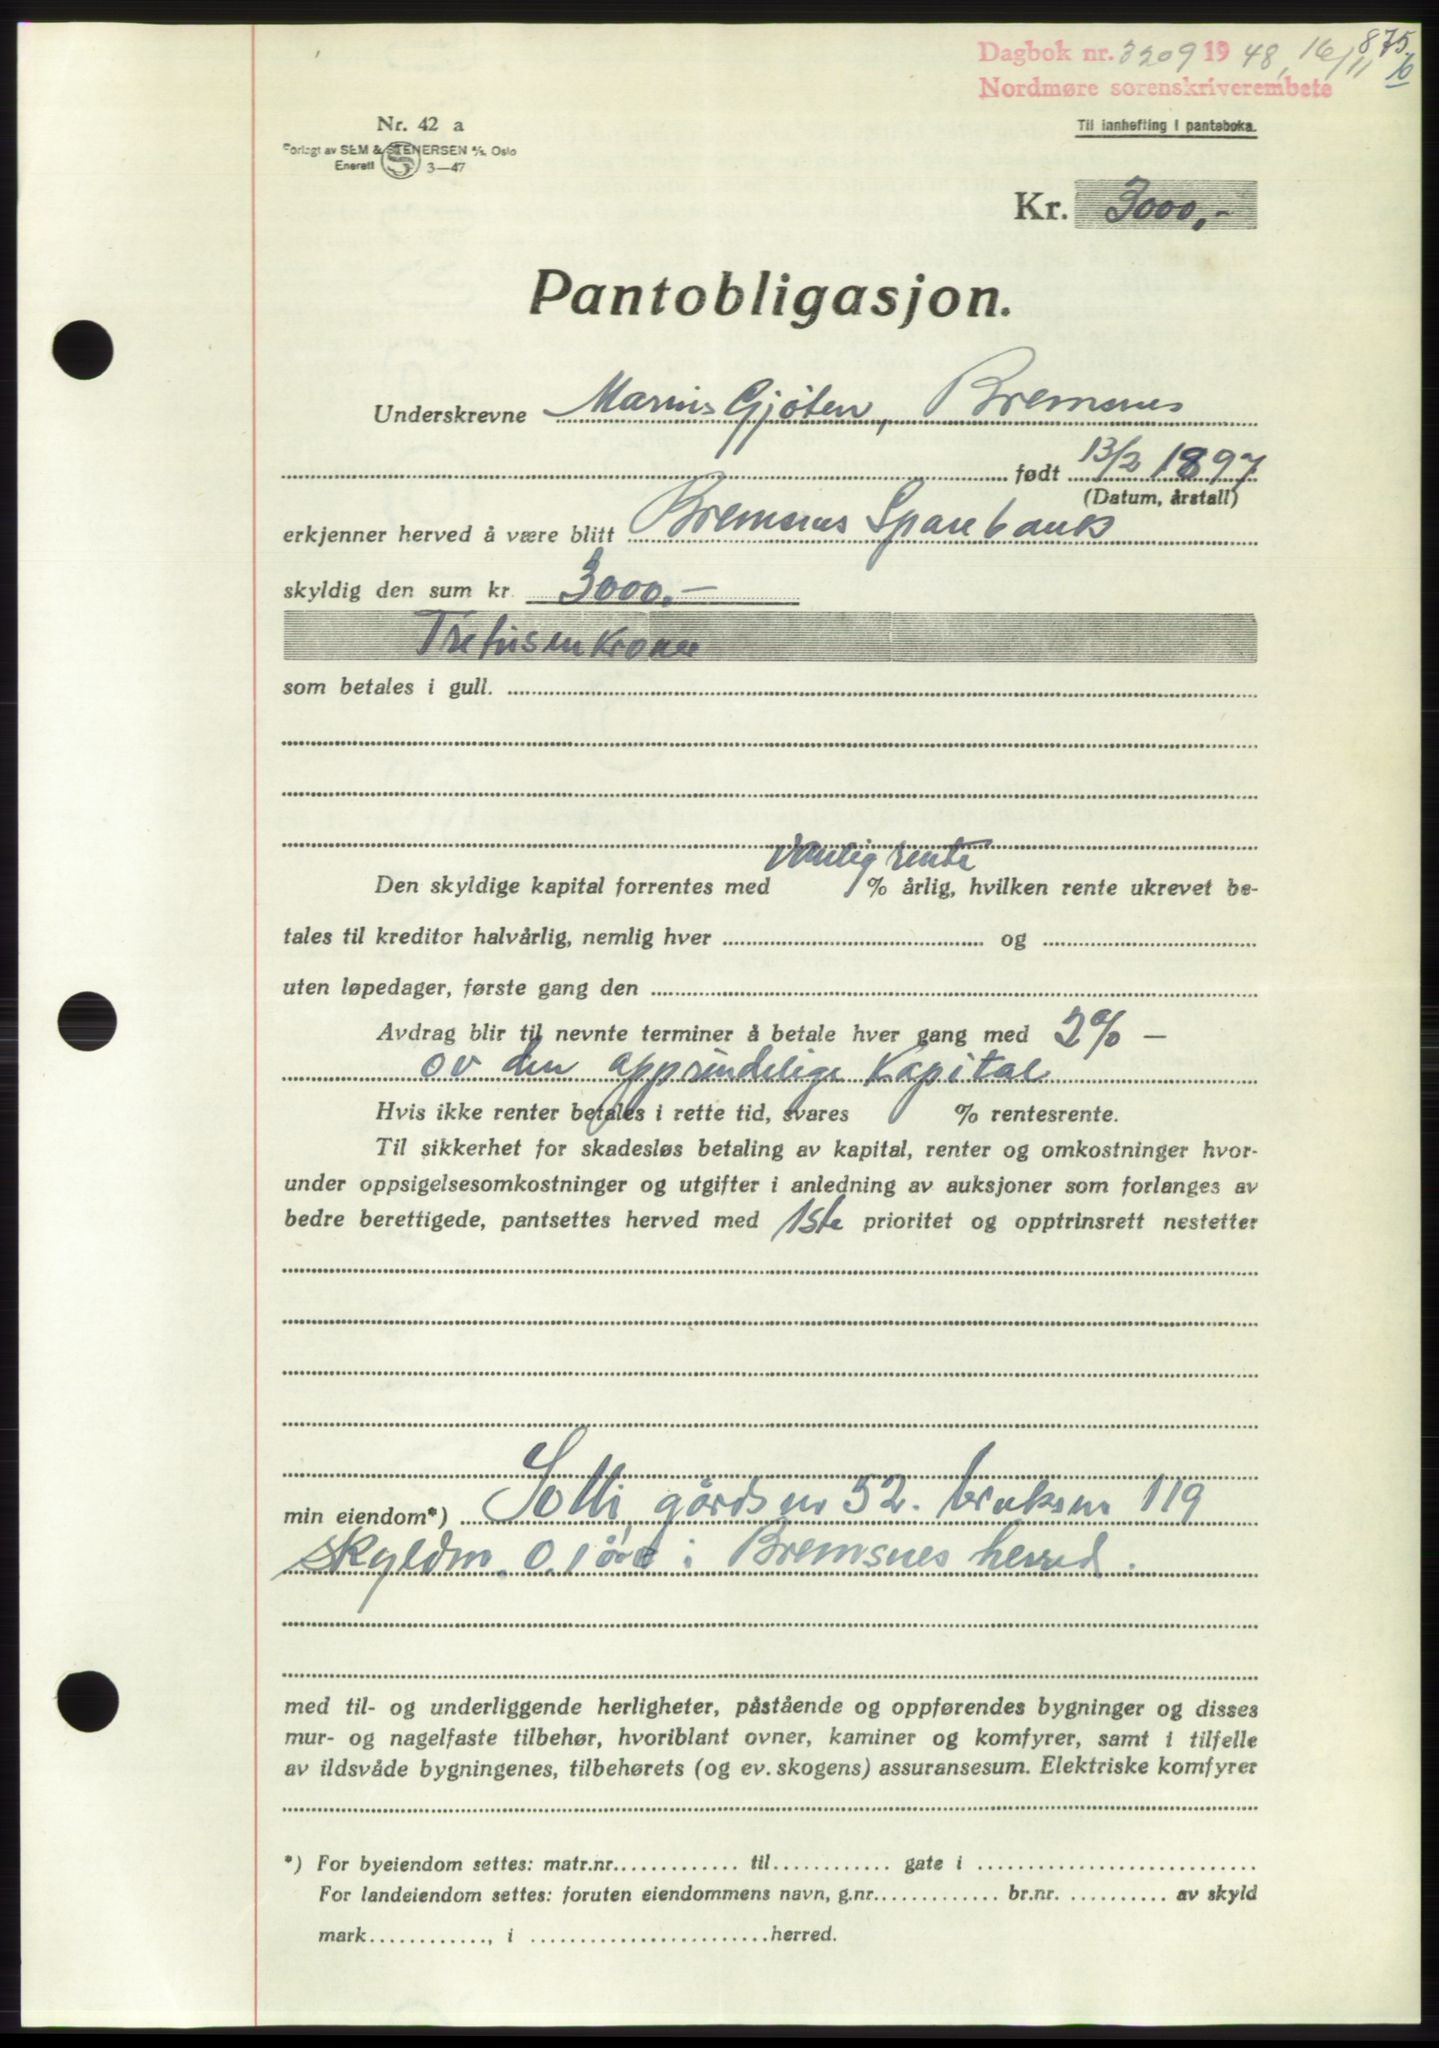 875.
Dagbok nr. 3209 1948, 16/11
Nordmøre sorenskriverembete
Nr. 42 a
Til innhefting i panteboka.
Forlagt av SEM & STENERSEN A/S, Oslo
Enerett S 3—47
Kr. 3000,-
Pantobligasjon.
Underskrevne Marius Gjöten, Bremsnes
født 13/2 1897
(Datum, årstall)
erkjenner herved å være blitt Bremsnes Sparebank
skyldig den sum kr. 3000,-
Tretusenkroner
som betales i gull.
vanlig rente
Den skyldige kapital forrentes med % årlig, hvilken rente ukrevet be-
tales til kreditor halvårlig, nemlig hver og
uten løpedager, første gang den
Avdrag blir til nevnte terminer å betale hver gang med 2% —
av den opprindelige Kapital
Hvis ikke renter betales i rette tid, svares % rentesrente.
Til sikkerhet for skadesløs betaling av kapital, renter og omkostninger hvor-
under oppsigelsesomkostninger og utgifter i anledning av auksjoner som forlanges av
bedre berettigede, pantsettes herved med 1ste prioritet og opptrinsrett nestetter
min eiendom*) Solli, gårdsnr 52. bruksnr 119
skyldm. 0.1 øre i Bremsnes herred.
med til- og underliggende herligheter, påstående og oppførendes bygninger og disses
mur- og nagelfaste tilbehør, hvoriblant ovner, kaminer og komfyrer, samt i tilfelle
av ildsvåde bygningenes, tilbehørets (og ev. skogens) assuransesum. Elektriske komfyrer
*) For byeiendom settes: matr.nr. til gate i
For landeiendom settes: foruten eiendommens navn, g.nr. br.nr. av skyld
mark , i herred.